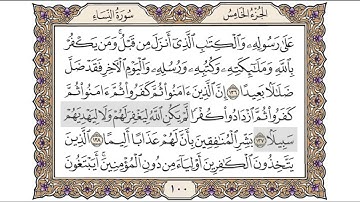 الجزء الخامس
سورة النساء
عَلَىٰ رَسُولِهِۦ وَٱلْكِتَٰبِ ٱلَّذِىٓ أَنزَلَ مِن قَبْلُ ۚ وَمَن يَكْفُرْ
بِٱللَّهِ وَمَلَٰٓئِكَتِهِۦ وَكُتُبِهِۦ وَرُسُلِهِۦ وَٱلْيَوْمِ ٱلْءَاخِرِ فَقَدْ ضَلَّ
ضَلَٰلًۢا بَعِيدًا ١٣٦ إِنَّ ٱلَّذِينَ ءَامَنُوا۟ ثُمَّ كَفَرُوا۟ ثُمَّ ءَامَنُوا۟ ثُمَّ
كَفَرُوا۟ ثُمَّ ٱزْدَادُوا۟ كُفْرًا لَّمْ يَكُنِ ٱللَّهُ لِيَغْفِرَ لَهُمْ وَلَا لِيَهْدِيَهُمْ
سَبِيلًۢا ١٣٧ بَشِّرِ ٱلْمُنَٰفِقِينَ بِأَنَّ لَهُمْ عَذَابًا أَلِيمًا ١٣٨ ٱلَّذِينَ
يَتَّخِذُونَ ٱلْكَٰفِرِينَ أَوْلِيَآءَ مِن دُونِ ٱلْمُؤْمِنِينَ ۚ أَيَبْتَغُونَ
١٠٠